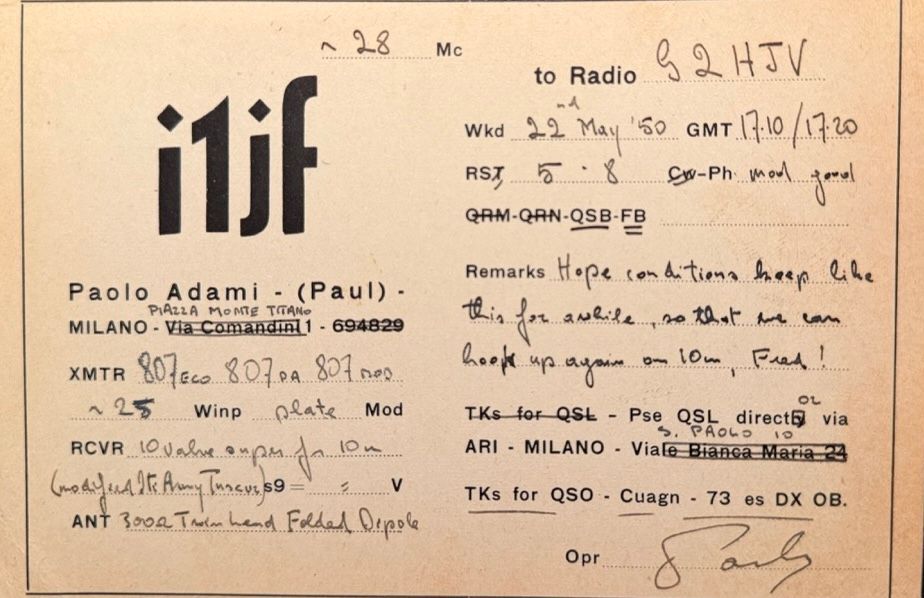 ~ 28 Mc
i1jf
Paolo Adami - (Paul) -
PIAZZA MONTE TITANO
MILANO - Via Comandini 1 - 694829
XMTR 807 ECO 807 PA 807 MOD
~ 25 Winp plate Mod
RCVR 10 valve super for 10m
(modified Ital Army) s9 = = V
ANT 300Ω Twin lead Folded Dipole
to Radio G2HJV
Wkd 22nd May '50 GMT 17.10/17.20
RST, 5 - 8 Cw-Ph mod good
QRM-QRN-QSB-FB
Remarks Hope conditions keep like
this for awhile, so that we can
hook up again on 10m, Fred!
TKs for QSL - Pse QSL direct or via
S. PAOLO 10
ARI - MILANO - Viale Bianca Maria 24
TKs for QSO - Cuagn - 73 es DX OB.
Opr Paolo